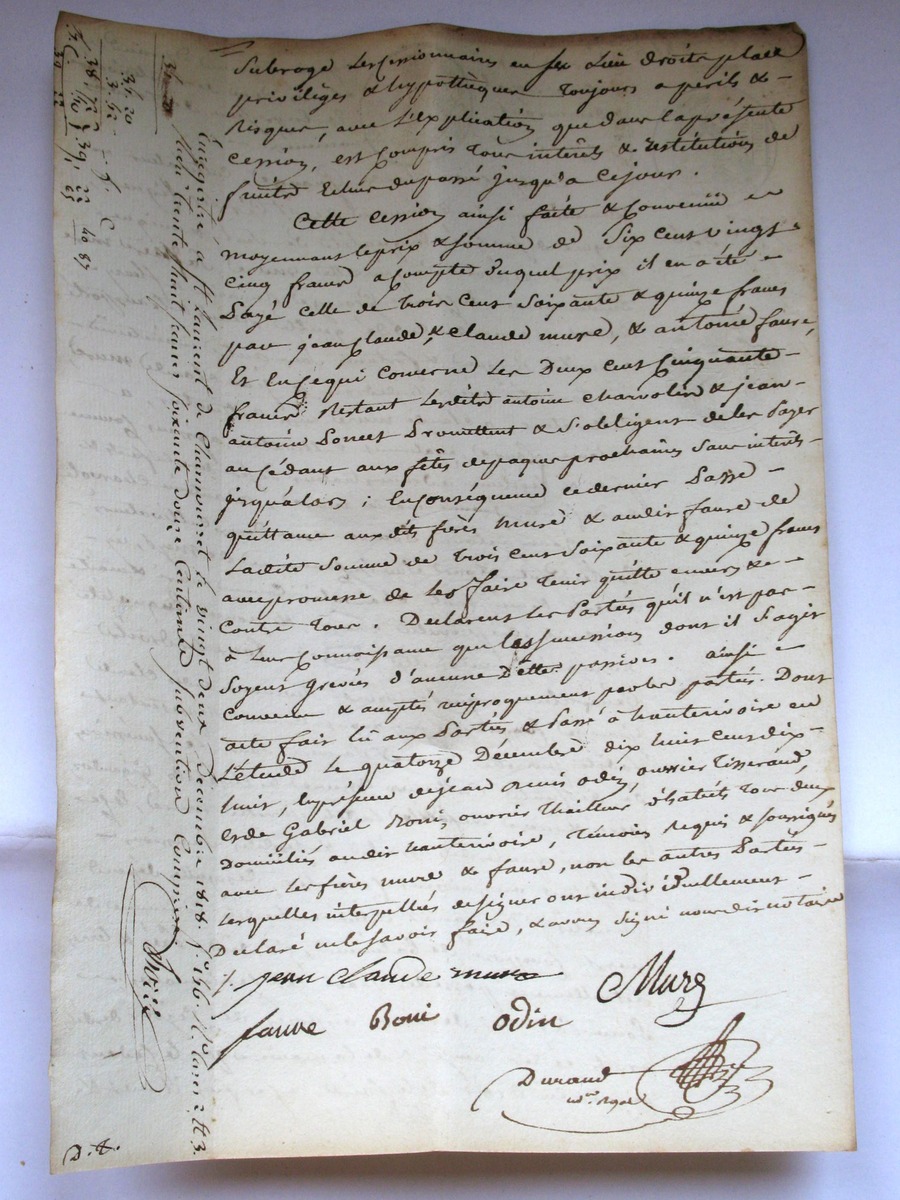 Subroge les Cessionnaires en ses Lieu Droits place
privilèges & hypothèques toujours a périls &
Risques, avec l'explication que dans la présente
Cession, est Compris tous intérêts & restitutions de
fruits Echus du passé jusqu'a ce jour.
Cette Cession ainsi faite & Convenüe en
moyennant le prix & somme de Six Cent vingt
Cinq francs acompte duquel prix il en a été
Payé Celle de trois Cent Soixante & quinze francs
par jean Claude, & Claude mure, & antoine faure,
Et En Ce qui Concerne Les Deux Cent Cinquante
francs Restant Lesdits antoine Charvolin & jean
antoine Poncet Promettent & S'obligent de les Payer
au Cédant aux fêtes de paque prochaines Sans intérêts
jusqu'alors ; En Conséquence ce dernier Passe
quittance auxdits frères Mure & audit faure de
Ladite Somme de trois Cent Soixante & quinze francs
avec promesse de Les faire tenir quitte envers &
Contre tous. Declarent Les Parties qu'il n'est pas
à Leur Connoissance que les Successions dont il S'agit
Soyent grevées d'aucune Dettes passives. ainsi
Convenu & accepté réciproquement par les parties. Dont
acte fait Lû aux Parties & Passé à hauterivoire en
L'étude Le quatorze Décembre dix huit Cent dix
huit, En présence de jean Odin, ouvrier Tisserand,
& de Gabriel Boni, ouvrier Tailleur d'habits tous deux
Domiciliés audit hauterivoire, Témoins Requis & Soussignés
avec les frères mure & faure, non les autres Parties
Lesquelles interpellées de signer ont individuellement
Déclaré ne le Savoir faire, & avons signé nous dit notaire
jean claude mure Mure
faure Boni odin
Durand
Nre Royal
Enregistré à St Laurent de Chamousset le vingt deux Décembre 1818. fo 146. Ro Cases 2 & 3.
Reçu trente huit francs soixante douze Centimes Subvention Comprise
D. t.
35 20
3 52
38 72
40 87